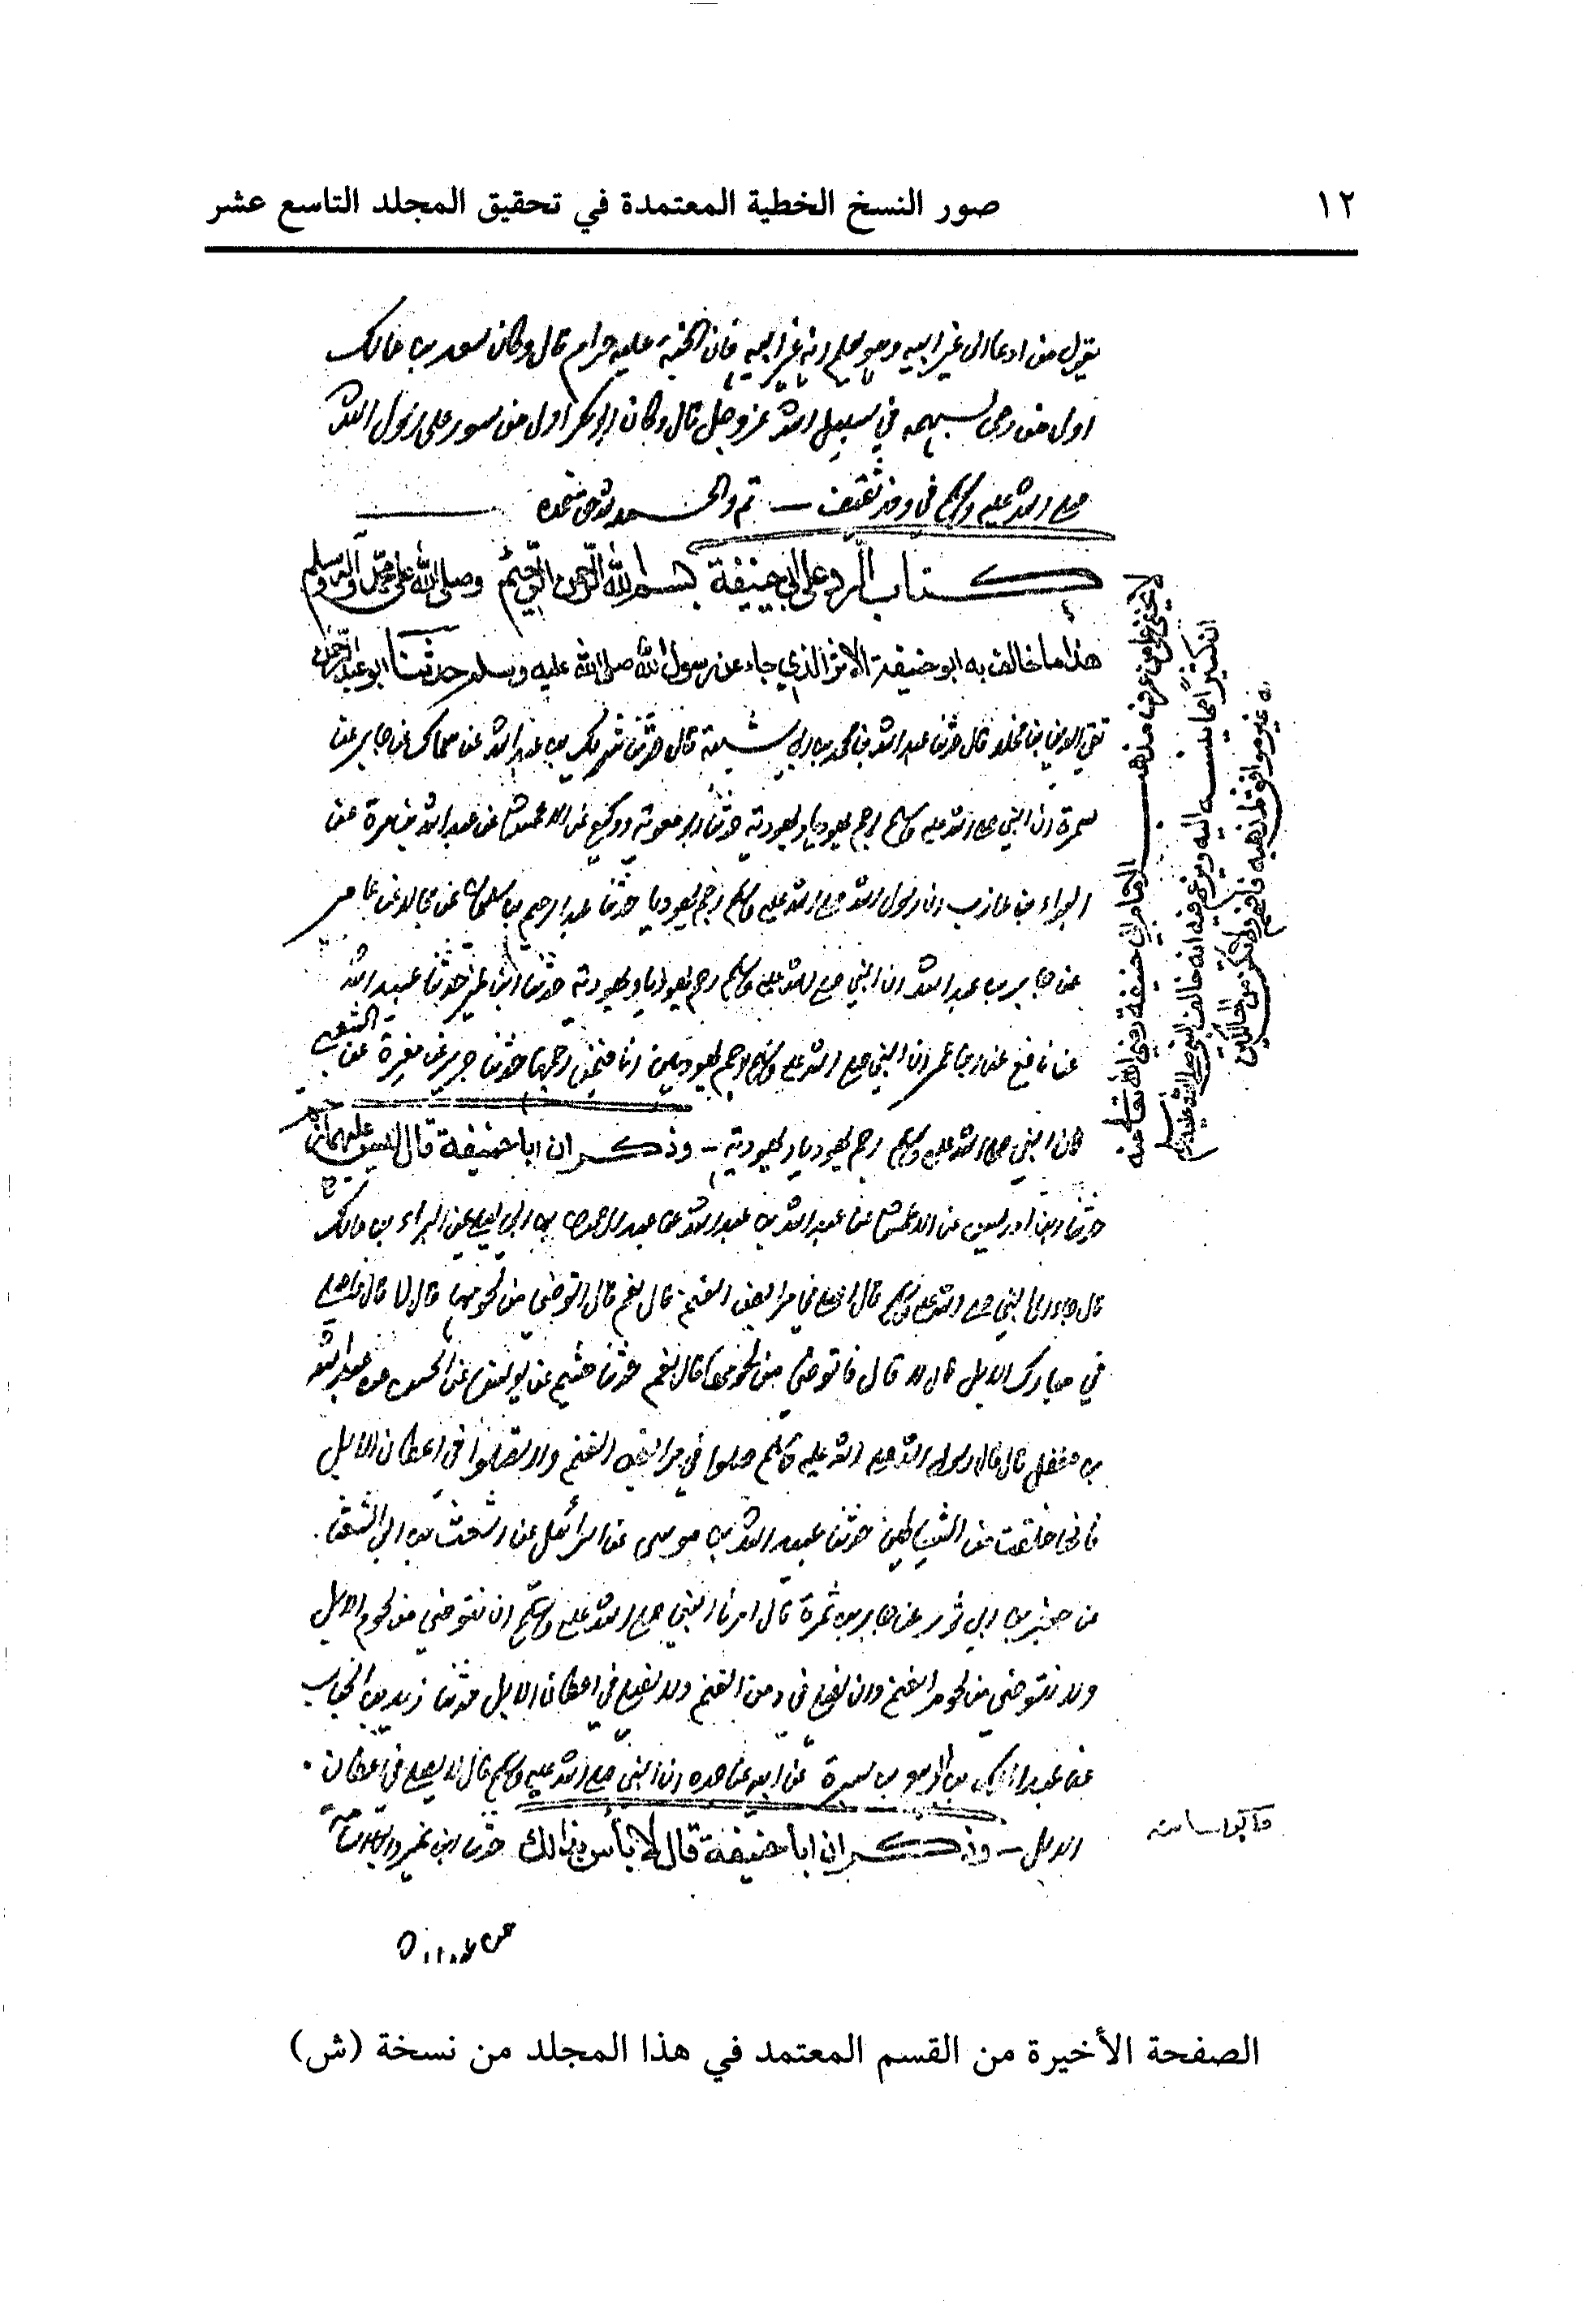 ١٢ صور النسخ الخطية المعتمدة في تحقيق المجلد التاسع عشر
يقول من ادعا الى غير ابيه وهو يعلم انه غير ابيه فان الجنة عليه حرام قال وكان سعد بن مالك
اول من رمى بسهمه في سبيل الله عز وجل قال وكان ابو بكر اول من سور على رسول الله
صلى الله عليه وسلم في وفد ثقيف تم والحمد لله حق حمده
كتاب الرد على ابي حنيفة بسم الله الرحمن الرحيم وصلى الله على محمد وآله وسلم
هذا ما خالف به ابو حنيفة الاثر الذي جاء عن رسول الله صلى الله عليه وسلم حدثنا ابو عبد الرحمن
بقي بن مخلد قال حدثنا عبد الله بن محمد بن ابي شيبة قال حدثنا شريك بن عبد الله عن سماك عن جابر بن
سمرة ان النبي صلى الله عليه وسلم رجم يهوديا ويهودية حدثنا ابو معوية ووكيع عن الاعمش عن عبد الله بن مرة عن
البراء بن عازب ان رسول الله صلى الله عليه وسلم رجم يهوديا حدثنا عبد الرحيم بن سليمان عن مجالد عن عامر
عن جابر بن عبد الله ان النبي صلى الله عليه وسلم رجم يهوديا ويهودية حدثنا ابن نمير حدثنا عبيد الله
عن نافع عن ابن عمر ان النبي صلى الله عليه وسلم رجم يهوديين انا فيمن رجمهما حدثنا جرير عن مغيرة عن الشعبي
ان النبي صلى الله عليه وسلم رجم يهوديا ويهودية – وذكر ان ابا حنيفة قال ليس عليهما رجم
حدثنا ابن ادريس عن الاعمش عن عبد الله بن عبد الله عن عبد الرحمن بن ابي ليلى عن البراء بن مالك
قال جاء رجل النبي صلى الله عليه وسلم قال اصلي في مرابض الغنم قال نعم قال اتوضى من لحومها قال لا قال فاصلي
في مبارك الابل قال لا قال فاتوضى من لحومها قال نعم حدثنا هشيم عن يونس عن الحسن عن عبد الله
بن مغفل قال قال رسول الله صلى الله عليه وسلم صلوا في مرابض الغنم ولا تصلوا في اعطان الابل
فانها خلقت من الشياطين حدثنا عبيد الله بن موسى عن اسرائيل عن اشعث بن ابي الشعثا
عن جعفر بن ابي ثور عن جابر بن سمرة قال امرنا النبي صلى الله عليه وسلم ان نتوضى من لحوم الابل
ولا نتوضى من لحوم الغنم وان نصلي في دمن الغنم ولا نصلي في اعطان الابل حدثنا زيد بن الحباب
عن عبد الملك بن الربيع بن سبرة عن ابيه عن جده ان النبي صلى الله عليه وسلم قال لا يصلى في اعطان
الابل – وذكر ان ابا حنيفة قال لا بأس بذلك حدثنا ابن نمير وابو اسامة
لا يخفى على من عرف مذهب الامام ابي حنيفة رضي الله تعالى عنه
ان كثيرا مما ينسبه اليه ويزعم فيه انه خالف النبي صلى الله عليه وسلم
غير موافق لمذهبه فافهم ولا تكن من الجاهلين
الصفحة الأخيرة من القسم المعتمد في هذا المجلد من نسخة (ش)